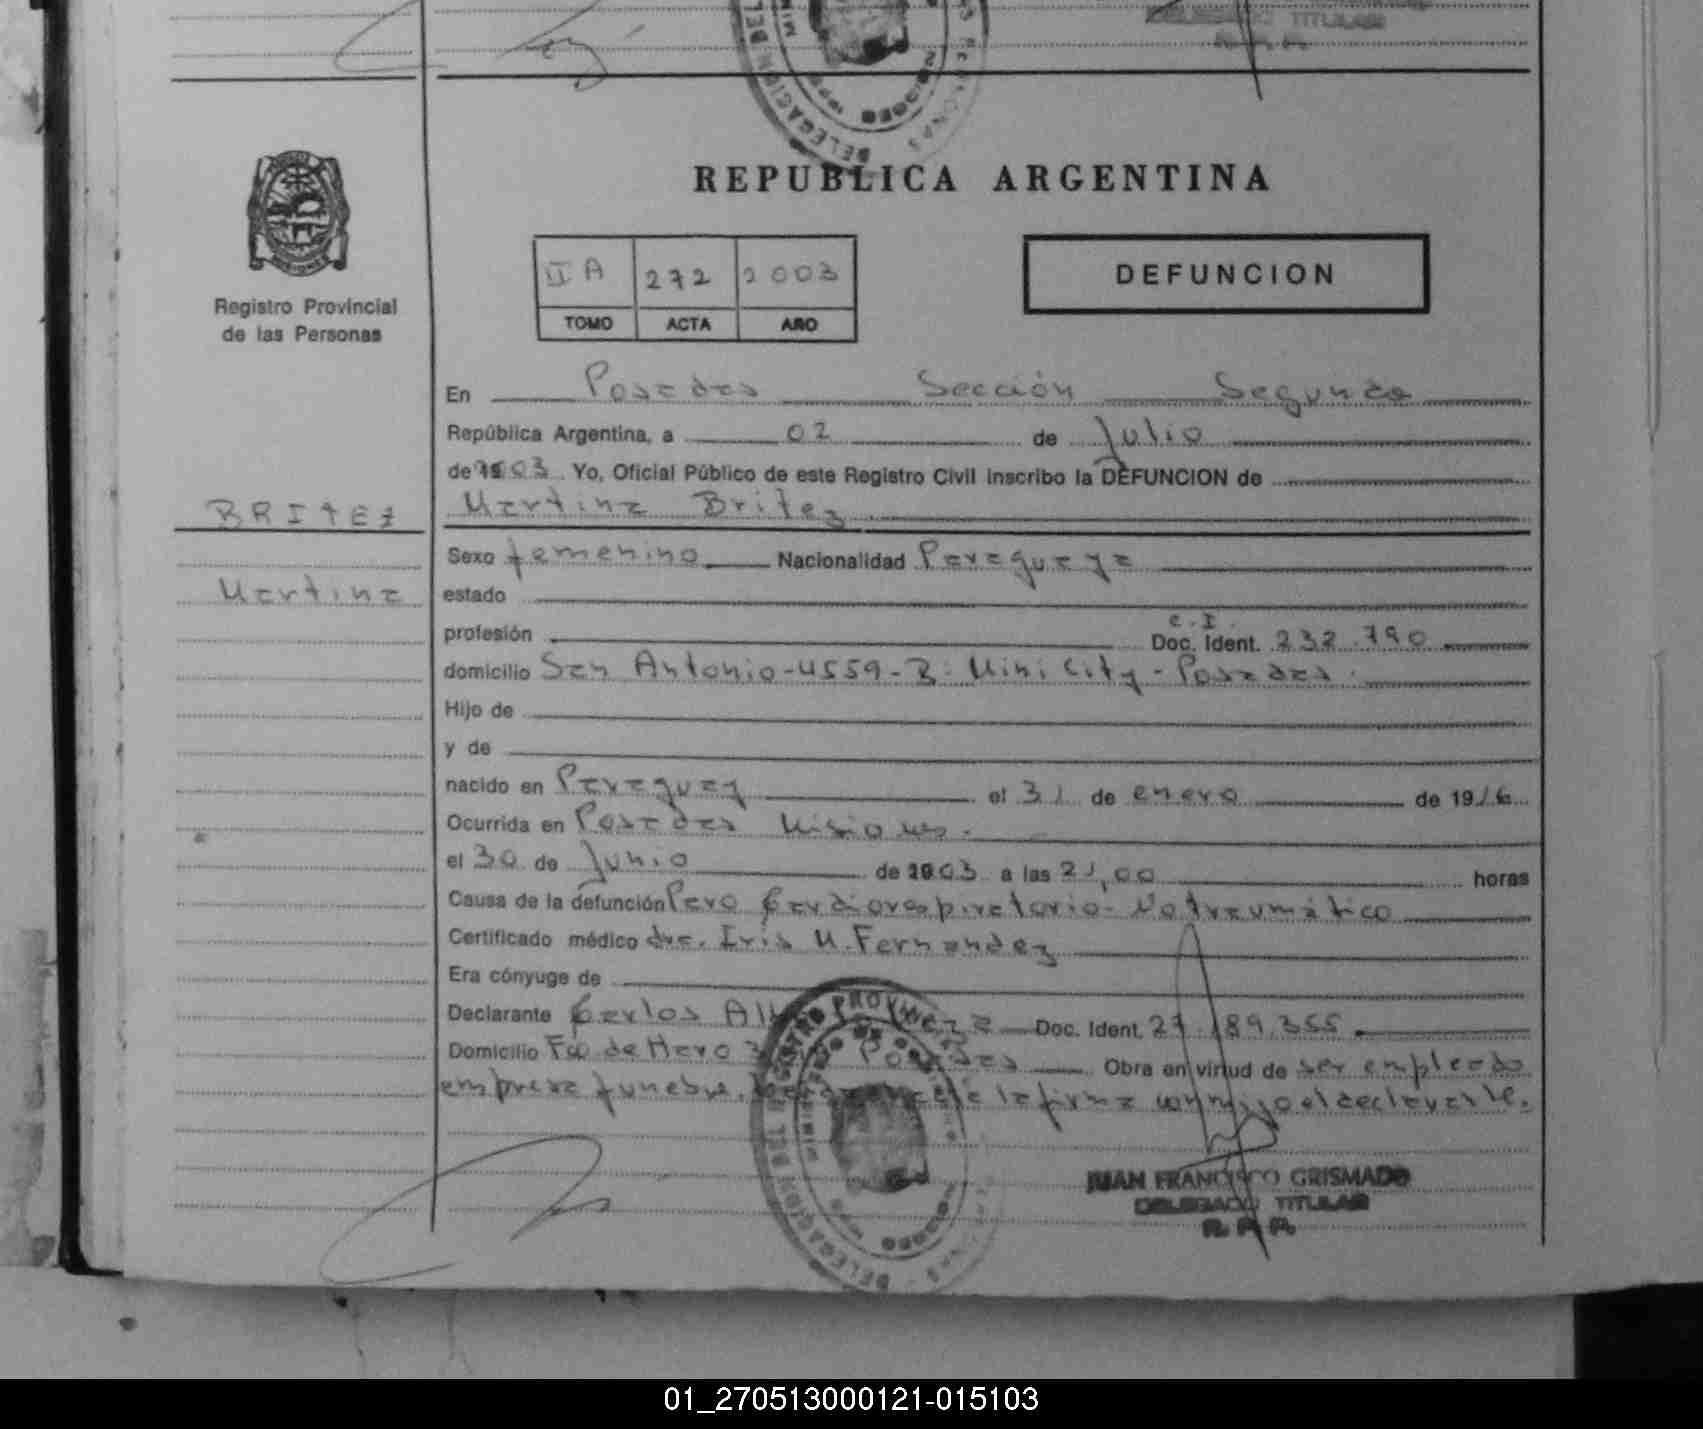 DELEGADO TITULAR
R. P. P.
REPUBLICA ARGENTINA
Registro Provincial
de las Personas
II A 272 2003
TOMO ACTA AÑO
DEFUNCION
En Posadas Sección Segunda
República Argentina, a 02 de Julio
de 2003. Yo, Oficial Público de este Registro Civil inscribo la DEFUNCION de
BRITEZ
Martina Britez
Sexo femenino Nacionalidad Paraguaya
Martina
estado
C.I.
profesión Doc. Ident. 232.790
domicilio San Antonio-4559-B: Mini City-Posadas.
Hijo de
y de
nacido en Paraguay el 31 de enero de 1916
Ocurrida en Posadas Misiones.
el 30 de Junio de 2003 a las 21,00 horas
Causa de la defunción Paro Cardiorespiratorio-No traumático
Certificado médico dra. Iris M. Fernandez
Era cónyuge de
Declarante Carlos Doc. Ident. 27.189.355
Domicilio Fco. de Haro Posadas Obra en virtud de ser empleado
empresa funebre. la firma conmigo el declarante.
JUAN FRANCISCO GRISMADO
DELEGADO TITULAR
R. P. P.
01_270513000121-015103